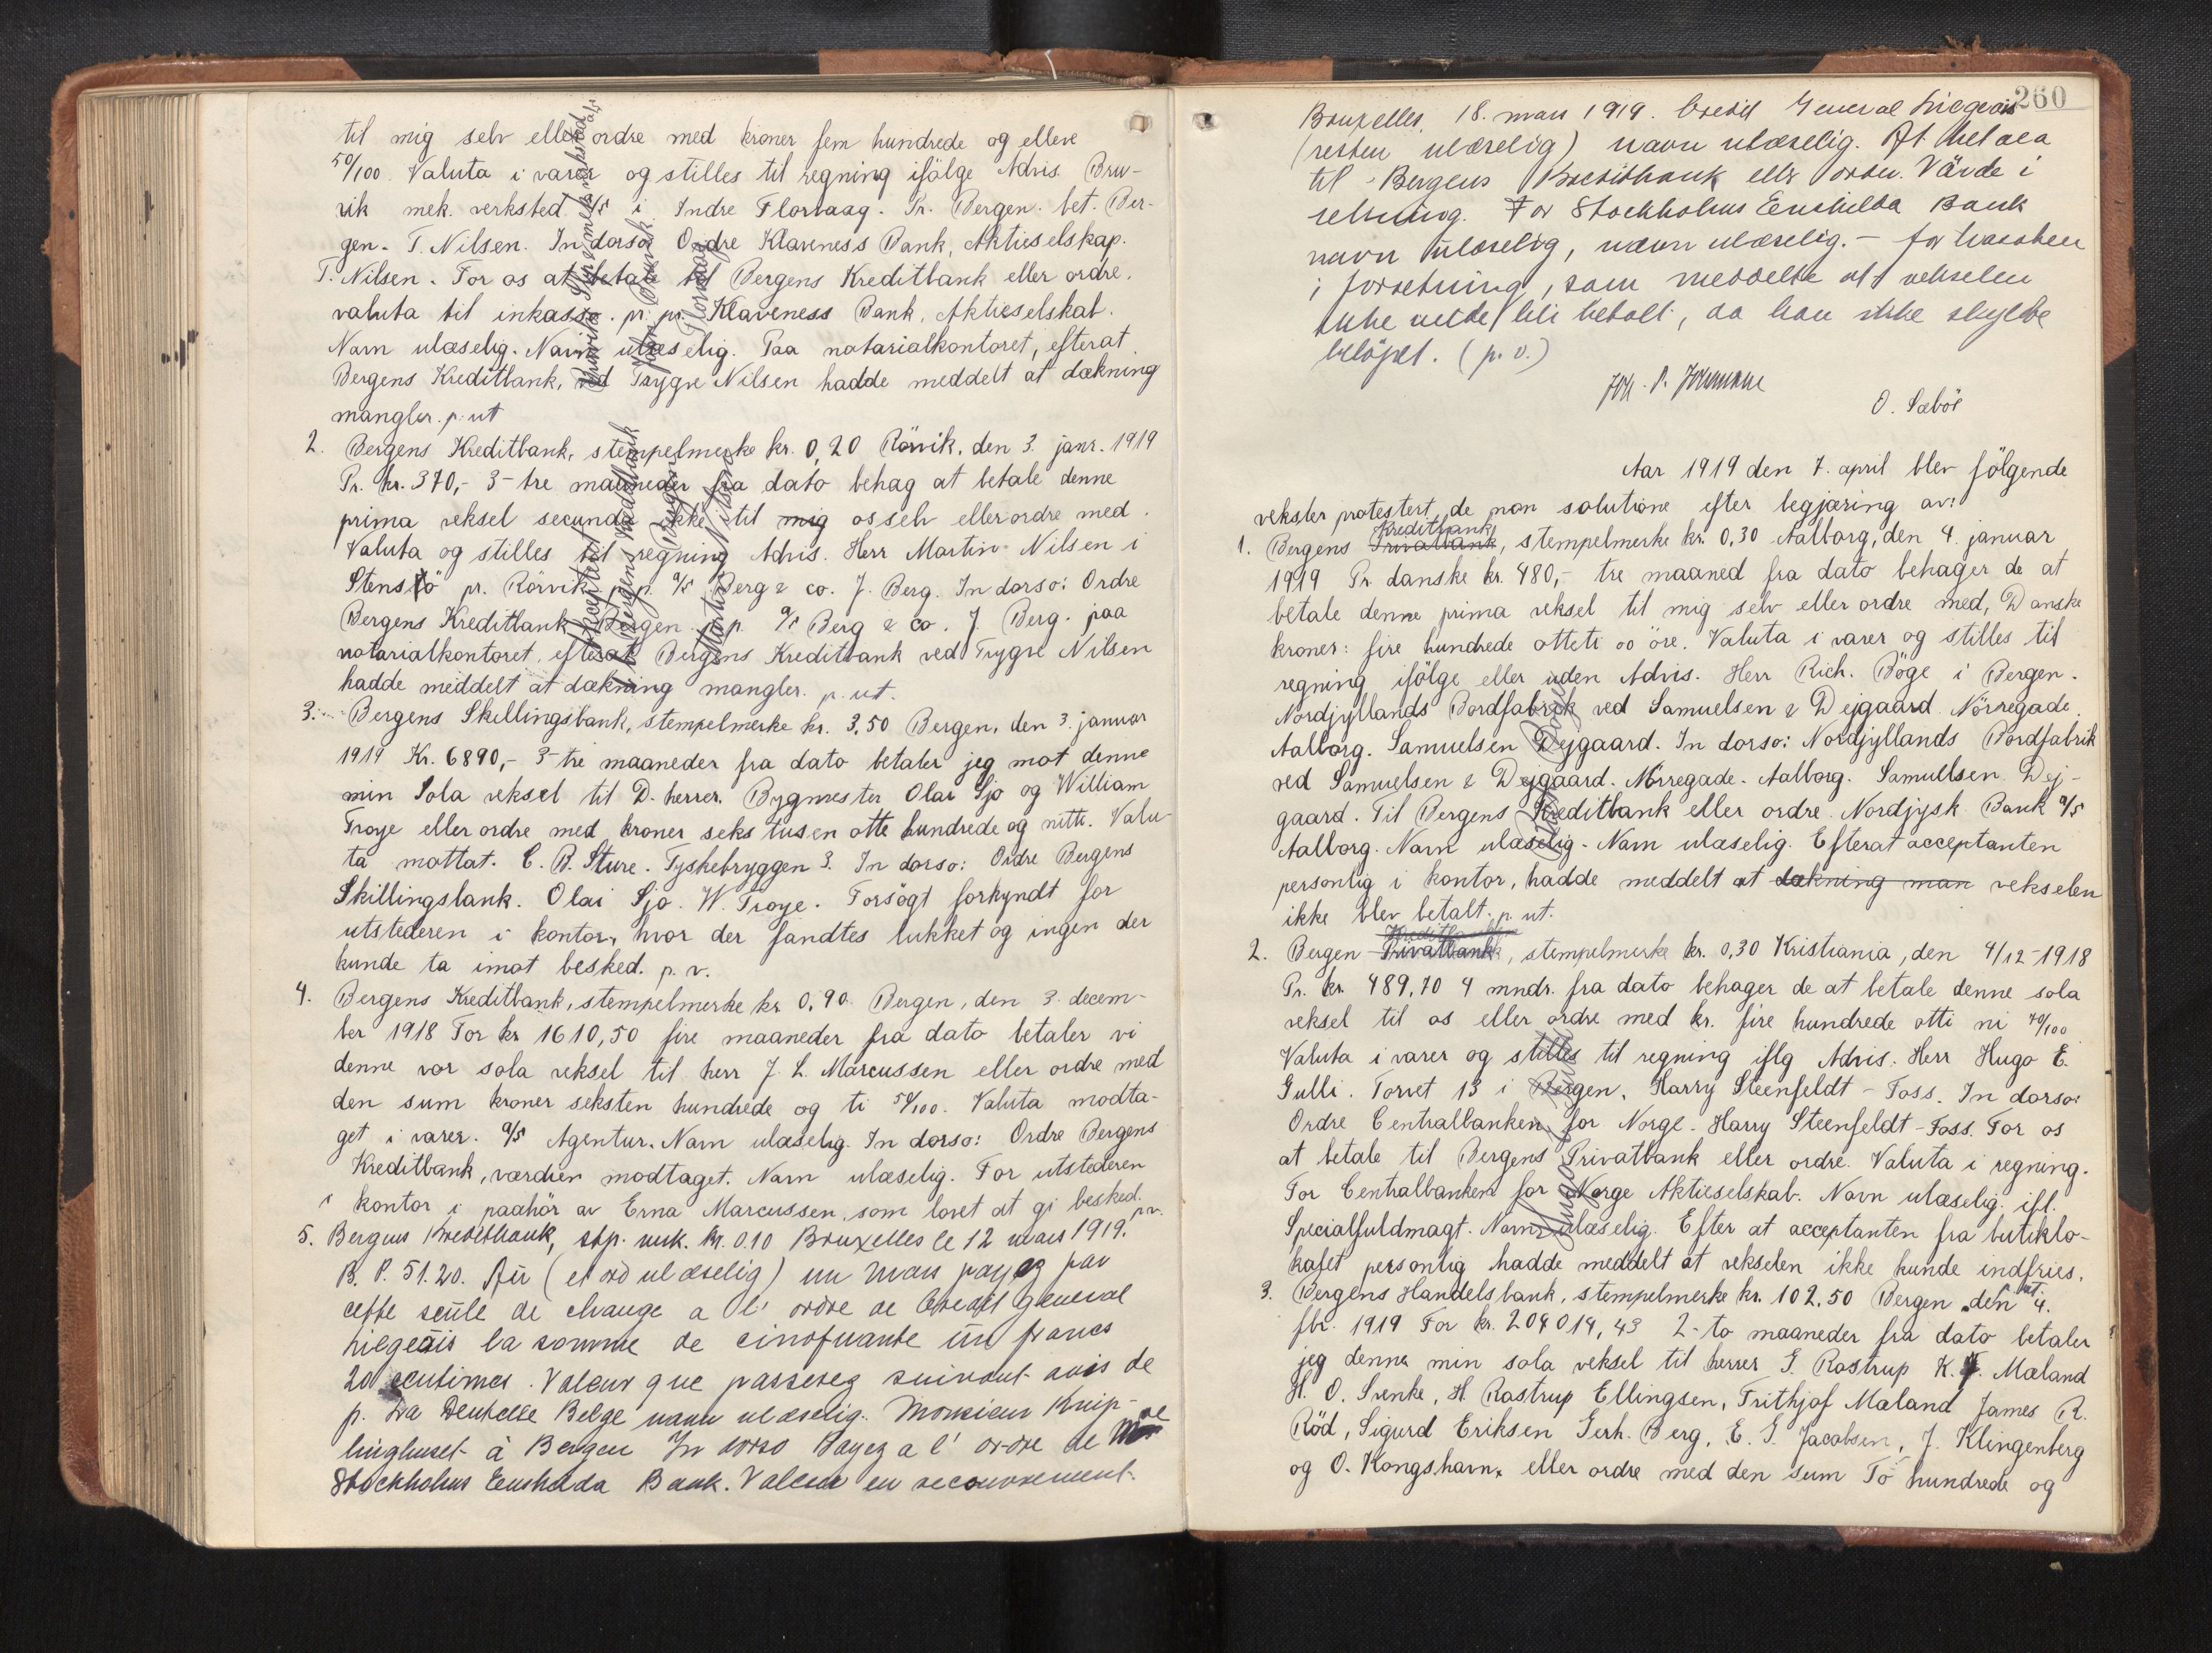 til mig selv eller ordre med kroner fem hundrede og elleve
50/100. Valuta i varer og stilles til regning ifölge Advis. Bru-
vik mek. verksted A/S i Indre Florvaag. Pr. Bergen. bet. Ber-
gen. T. Nilsen. In dorso Ordre Klaveness Bank, Aktieselskap.
T. Nilsen. For os at betale til Bergens Kreditbank eller ordre.
valuta til inkasso. pr. pr. Klaveness Bank, Aktieselskab.
Navn ulæselig. Navn ulæselig. Paa notarialkontoret, efterat
Bergens Kreditbank, ved Trygve Nilsen hadde meddelt at dækning
mangler. p. ut
2. Bergens Kreditbank, stempelmerke kr. 0,20 Rörvik, den 3. janr. 1919
Pr. kr. 370,- 3- tre maaneder fra dato behag at betale denne
prima veksel secunda ikke til mig os selv eller ordre med.
Valuta og stilles til regning Advis. Herr Martin Nilsen i
Stensö pr. Rörvik p. p. A/S Berg & co. J. Berg. In dorso: Ordre
Bergens Kreditbank Bergen. p. p. A/S Berg & co. J. Berg. paa
notarialkontoret, efterat Bergens Kreditbank ved Trygve Nilsen
hadde meddelt at dækning mangler. p. ut.
3. Bergens Skillingsbank, stempelmerke kr. 3,50 Bergen, den 3. januar
1919 Kr. 6890,- 3- tre maaneder fra dato betaler jeg mot denne
min Sola veksel til D. herrer. Bygmester Olai Sjo og William
Troye eller ordre med kroner seks tusen otte hundrede og nitti. Valu-
ta mottat. C. B. Sture. Tyskebryggen 3. In dorso: Ordre Bergens
Skillingsbank. Olai Sjo. W. Troye. Forsögt forkyndt for
utstederen i kontor, hvor der fandtes lukket og ingen der
kunde ta imot besked. p. v.
4. Bergens Kreditbank, stempelmerke kr 0,90 Bergen, den 3. decem-
ber 1918 For kr 1610,50 fire maaneder fra dato betaler vi
denne vor sola veksel til herr J. L. Marcussen eller ordre med
den sum kroner seksten hundrede og ti 50/100. Valuta modta-
get i varer. A/S Agentur. Navn ulæselig. In dorso: Ordre Bergens
Kreditbank, værdien modtaget. Navn ulæselig. For utstederen
i kontor i paahör av Erna Marcussen, som lovet at gi besked. p.v.
5. Bergens Kreditbank, stp. merk. kr. 0.10 Bruxelles le 12 mars 1919.
B. P. 51.20. Au (et ord ulæselig) un mars payez par
cette seule de change a l' ordre de Credit general
Liegeois la somme de cinquante un francs
20 centimes. Valeur que passerez suivant avis de
p. La Dentelle Belge navn ulæselig. Monsieur Knip-
linghuset à Bergen In dorso Payez a l' ordre de
Stockholms Enskilda Bank. Valeur en recouvrement.
Bruvik mek. verksted A/S
Florvaag
Accepteret
Bergens Kreditbank
Bergen
Martin Nilsen
260
Bruxelles, 18. mars 1919. Credit General Liegeois
(resten ulæselig) navn ulæselig. At betala
til Bergens Kreditbank eller order. Värde i
rekning. For Stockholms Enskilda Bank
navn ulæselig, navn ulæselig. - for trassaten
i forretning, som meddelte at vekselen
ikke vilde bli betalt, da han ikke skyldte
belöpet. (p. v.)
O. Sæböe
Aar 1919 den 7. april blev fölgende
veksler protestert de non solutione efter begjæring av:
Kreditbank
1. Bergens Privatbank, stempelmerke kr. 0,30 Aalborg, den 4. januar
1919 Pr. danske kr. 480,- tre maaned fra dato behager de at
betale denne prima veksel til mig selv eller ordre med, Danske
kroner: fire hundrede otteti 00 öre. Valuta i varer og stilles til
regning ifölge eller uden Advis. Herr Rich. Böge i Bergen.
Nordjyllands Bordfabrik ved Samuelsen & Dejgaard Nörregade.
Aalborg. Samuelsen Dejgaard. In dorso: Nordjyllands Bordfabrik
ved Samuelsen & Dejgaard. Nörregade. Aalborg. Samuelsen Dej-
gaard. Til Bergens Kreditbank eller ordre. Nordjysk Bank A/S
Aalborg. Navn ulæselig. Navn ulæselig. Efterat acceptanten
personlig i kontor, hadde meddelt at dækning man vekselen
ikke blev betalt. p. ut.
Kreditbanken
2. Bergen Privatbank, stempelmerke kr. 0,30 Kristiania, den 4/12-1918
Pr. kr. 489,70 4 mndr. fra dato behager de at betale denne sola
veksel til os eller ordre med kr. fire hundrede otti ni 70/100
Valuta i varer og stilles til regning iflg Advis. Herr Hugo E.
Gulli. Torvet 13 i Bergen. Harry Steenfeldt - Foss. In dorso:
Ordre Centralbanken for Norge. Harry Steenfeldt - Foss. For os
at betale til Bergens Privatbank eller ordre. Valuta i regning.
For Centralbanken for Norge Aktieselskab. Navn ulæselig ifl.
Specialfuldmagt. Navn ulæselig. Efter at acceptanten fra butiklo-
kalet personlig hadde meddelt at vekselen ikke kunde indfries.
3. Bergens Handelsbank, stempelmerke kr. 102.50 Bergen, den 4.
fbr. 1919 For kr. 204014,43 2- to maaneder fra dato betaler
jeg denne min sola veksel til herrer G. Rastrup K. F. Mæland
H. O. Svenke, H. Rastrup Ellingsen, Frithjof Mæland James R.
Röd, Sigurd Eriksen Gerh. Berg, E. G. Jacobsen, J. Klingenberg
og O. Kongshavn, eller ordre med den sum To hundrede og